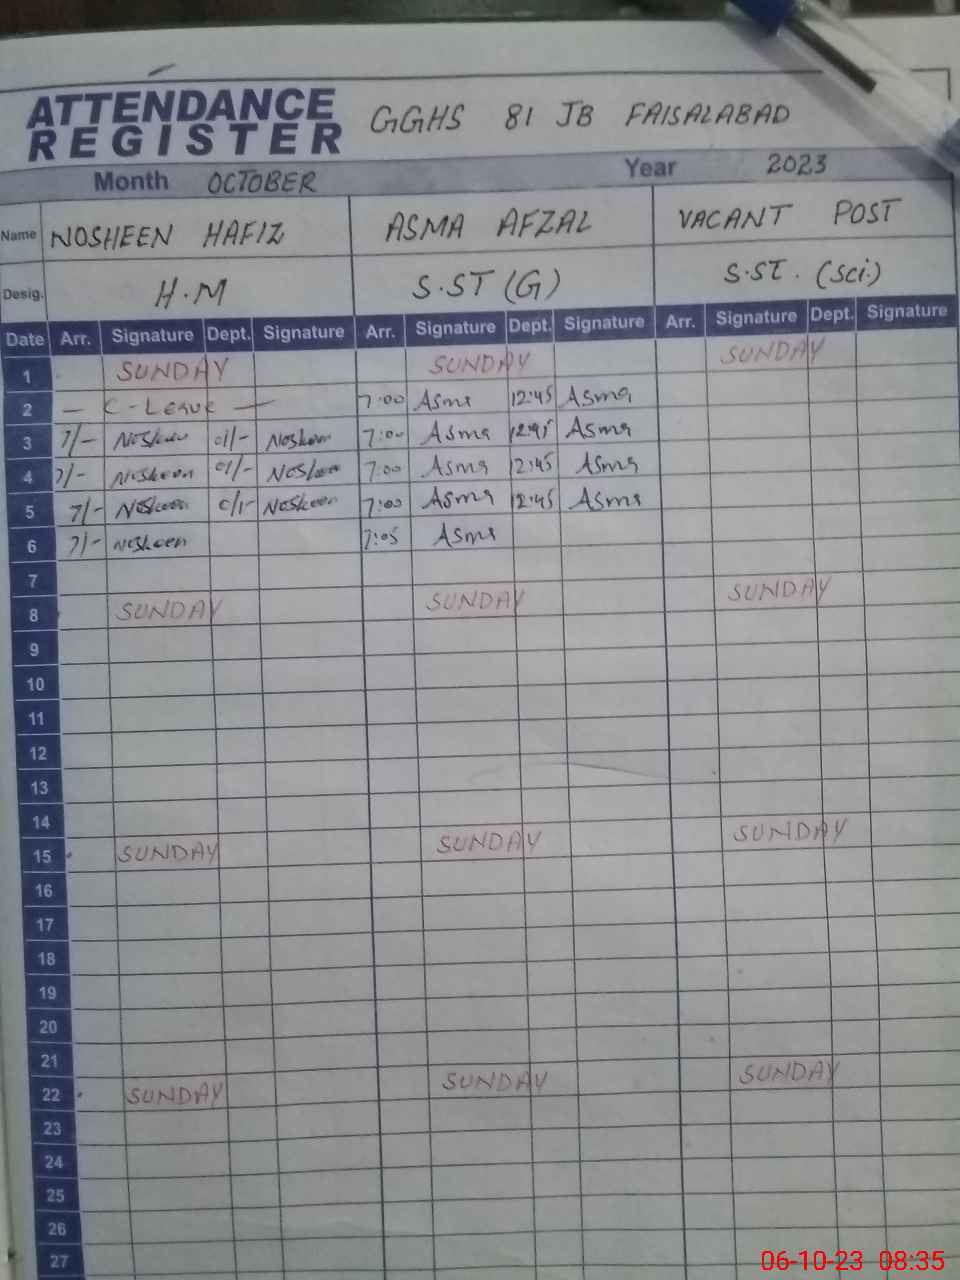 ATTENDANCE
REGISTER
GGHS 81 JB FAISALABAD
Month OCTOBER Year 2023
Name NOSHEEN HAFIZ ASMA AFZAL VACANT POST
Desig. H.M S.ST (G) S.ST. (Sci.)
Date Arr. Signature Dept. Signature Arr. Signature Dept. Signature Arr. Signature Dept. Signature
1 SUNDAY SUNDAY SUNDAY
2 — C-Leave — 7:00 Asma 12:45 Asma
3 7/- Nosheen 01/- Nosheen 7:00 Asma 12:45 Asma
4 7/- Nosheen 01/- Nosheen 7:00 Asma 12:45 Asma
5 7/- Nosheen 01/- Nosheen 7:00 Asma 12:45 Asma
6 7/- Nosheen 7:05 Asma
7
8 SUNDAY SUNDAY SUNDAY
9
10
11
12
13
14
15 SUNDAY SUNDAY SUNDAY
16
17
18
19
20
21
22 SUNDAY SUNDAY SUNDAY
23
24
25
26
27
06-10-23 08:35